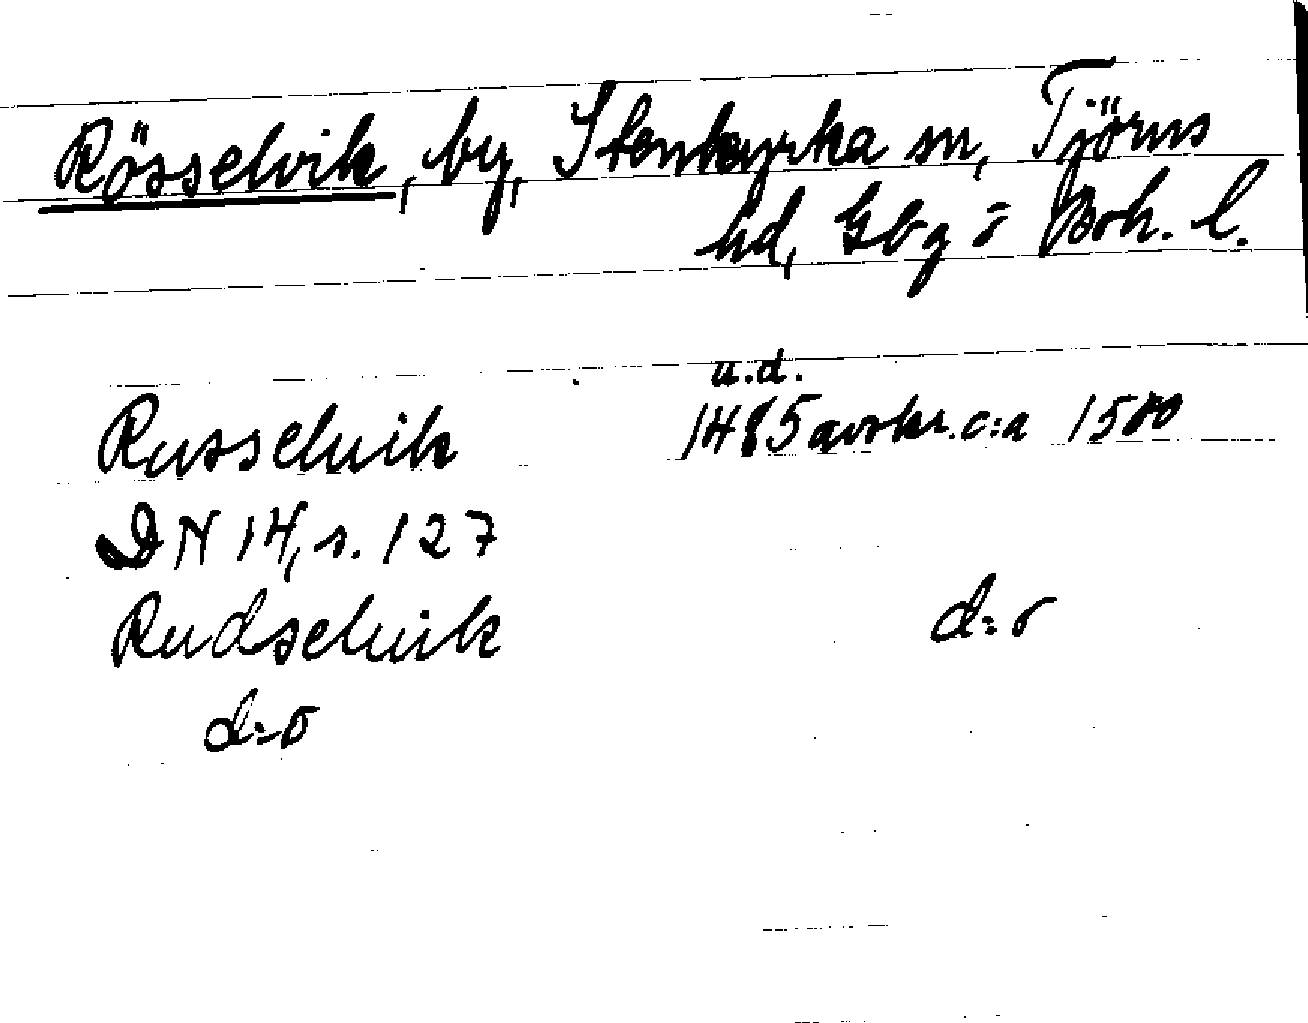 Rösselvik, by, Stenkyrka sn, Tjörns
hd, Gbg o Boh. l.
u.d.
Russeluik 1485 avskr. c:a 1500
DN 14, s. 127
Rudseluik d:o
d:o